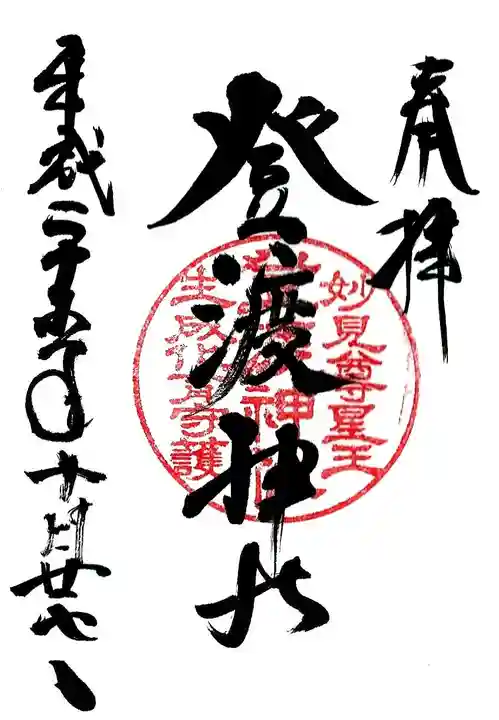 奉拝
登渡神社
妙見尊星王
登渡神社
生成化育守護
平成二十五年十月廿七日